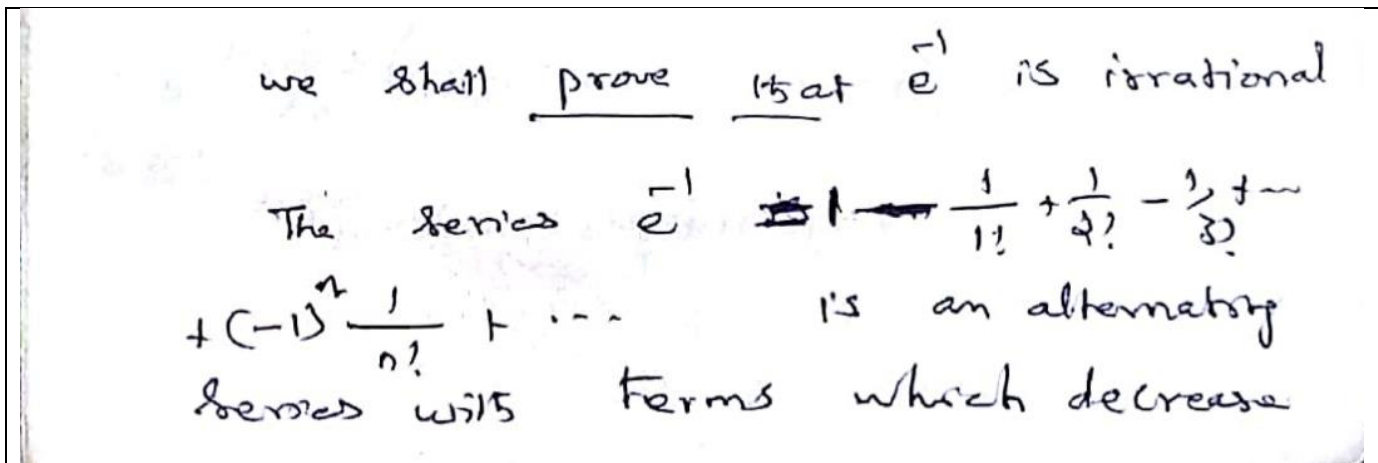 we shall prove that e^{-1} is irrational
The series e^{-1} = 1 - \frac{1}{1!} + \frac{1}{2!} - \frac{1}{3!} + ...
+ (-1)^n \frac{1}{n!} + ... is an alternating
series with terms which decrease